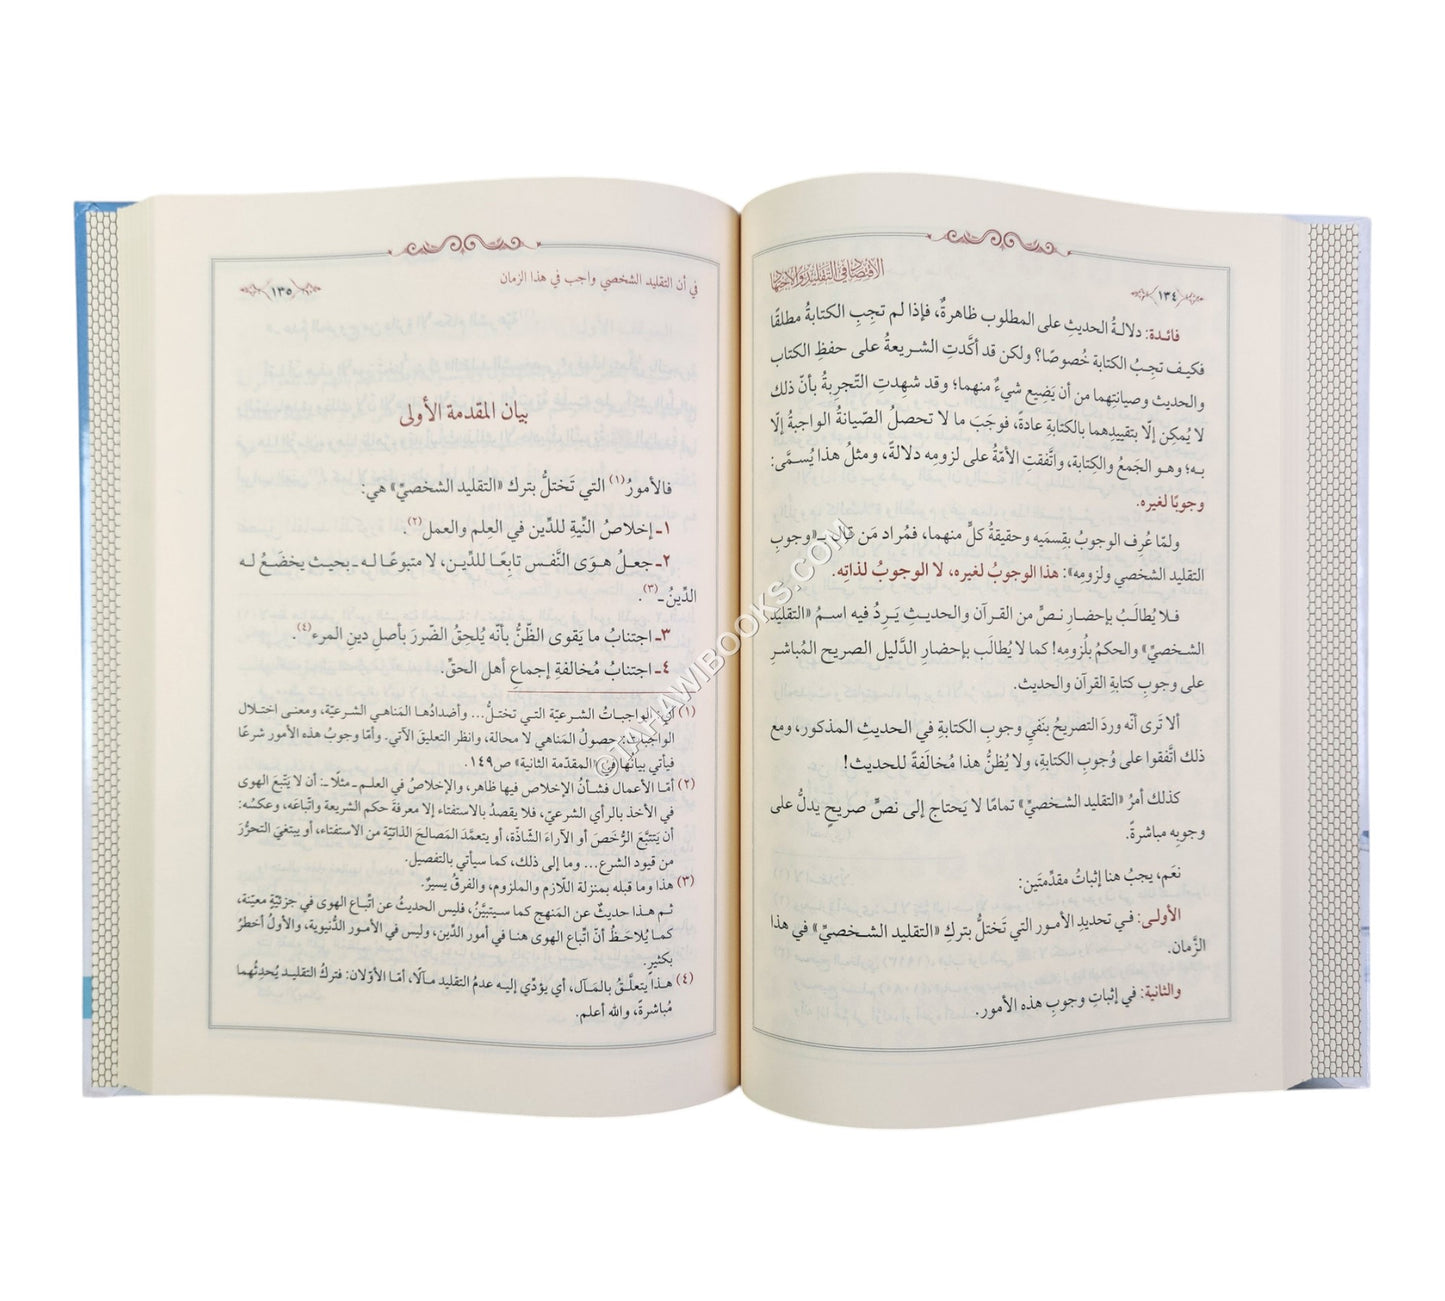 الاقتصاد في التقليد والاجتهاد
١٣٤
فائدة: دلالةُ الحديثِ على المطلوب ظاهرةٌ، فإذا لم تجِبِ الكتابةُ مطلقًا
فكيف تجِبُ الكتابة خُصوصًا؟ ولكن قد أكَّدتِ الشريعةُ على حفظِ الكتاب
والحديث وصيانتِهما من أن يَضِيع شيءٌ منهما؛ وقد شهِدتِ التّجرِبةُ بأنّ ذلك
لا يُمكِن إلّا بتقييدِهما بالكتابةِ عادةً، فوجَبَ ما لا تحصلُ الصّيانةُ الواجبةُ إلّا
به؛ وهو الجَمعُ والكِتابة، واتَّفقتِ الأمّةُ على لزومِه دلالةً، ومثلُ هذا يُسمَّى:
وجوبًا لغيره.
ولمّا عُرِف الوجوبُ بقِسمَيه وحقيقةُ كلٍّ منهما، فمُراد مَن قال بـ«وجوبِ
التقليد الشخصي ولزومِه»: هذا الوجوبُ لغيره، لا الوجوبُ لذاتِه.
فلا يُطالَبُ بإحضارِ نصٍّ من القرآن والحديثِ يَرِدُ فيه اسمُ «التقليد
الشخصيِّ» والحكمُ بلُزومِه! كما لا يُطالَب بإحضارِ الدَّليل الصريح المُباشرِ
على وجوبِ كتابةِ القرآن والحديث.
ألا تَرى أنّه وردَ التصريحُ بنَفيِ وجوبِ الكتابةِ في الحديثِ المذكور، ومع
ذلك اتَّفقوا على وُجوبِ الكتابةِ، ولا يُظنُّ هذا مُخالَفةً للحديث!
كذلك أمرُ «التقليد الشخصيِّ» تمامًا لا يَحتاج إلى نصٍّ صريحٍ يدلُّ على
وجوبِه مباشرةً.
نعَم، يجبُ هنا إثباتُ مقدِّمتَين:
الأولى: في تحديدِ الأمور التي تَختلُّ بتركِ «التقليد الشخصيِّ» في هذا
الزَّمان.
والثانية: في إثباتِ وجوبِ هذه الأمور.
في أن التقليد الشخصي واجب في هذا الزمان
١٣٥
بيان المقدمة الأولى
فالأمورُ(١) التي تَختلُّ بترك «التقليد الشخصيِّ» هي:
١ـ إخلاصُ النّيةِ للدِّين في العلم والعمل(٢).
٢ـ جعلُ هوَى النَّفس تابِعًا للدِّين، لا متبوعًا له ـ بحيث يخضَعُ له
الدِّينُ ـ(٣).
٣ـ اجتنابُ ما يَقوى الظّنُّ بأنّه يُلحِقُ الضّررَ بأصلِ دينِ المرء(٤).
٤ـ اجتنابُ مُخالفةِ إجماعِ أهل الحقِّ.
(١) أي: الواجباتُ الشرعيّة التي تختلُّ... وأضدادُها المَناهي الشرعيّة، ومعنى اختلال
الواجبات: حصولُ المَناهي لا محالة، وانظر التعليقَ الآتي. وأمّا وجوبُ هذه الأمور شرعًا
فيأتي بيانُها في «المقدّمة الثانية» ص١٤٩.
(٢) أمّا الأعمال فشأنُ الإخلاص فيها ظاهر، والإخلاصُ في العلم ـ مثلًا ـ: أن لا يَتَّبِعَ الهوى
في الأخذ بالرأي الشرعيّ، فلا يقصدُ بالاستفتاء إلا معرفةَ حكم الشريعة واتِّباعَه، وعكسُه:
أن يَتتبَّع الرُّخَصَ أو الآراءَ الشّاذّة، أو يتعمَّدَ المَصالحَ الذاتيّة مِن الاستفتاء، أو يبتغيَ التحرُّرَ
من قيود الشرع... وما إلى ذلك، كما سيأتي بالتفصيل.
(٣) هذا وما قبله بمنزلة اللّازم والملزوم، والفرقُ يسيرٌ.
ثم هذا حديثٌ عن المَنهج كما سيتبيَّنُ، فليس الحديثُ عن اتّباع الهوى في جزئيّةٍ معيّنة،
كما يُلاحَظُ أنّ اتّباع الهوى هنا في أمور الدِّين، وليس في الأمور الدُّنيوية، والأولُ أخطرُ
بكثيرٍ.
(٤) هذا يتعلَّقُ بالمَآل، أي يؤدِّي إليه عدمُ التقليد مآلًا، أمّا الأوّلان: فتركُ التقليد يُحدِثُهما
مُباشرةً، والله أعلم.
©TAHAWIBOOKS.COM